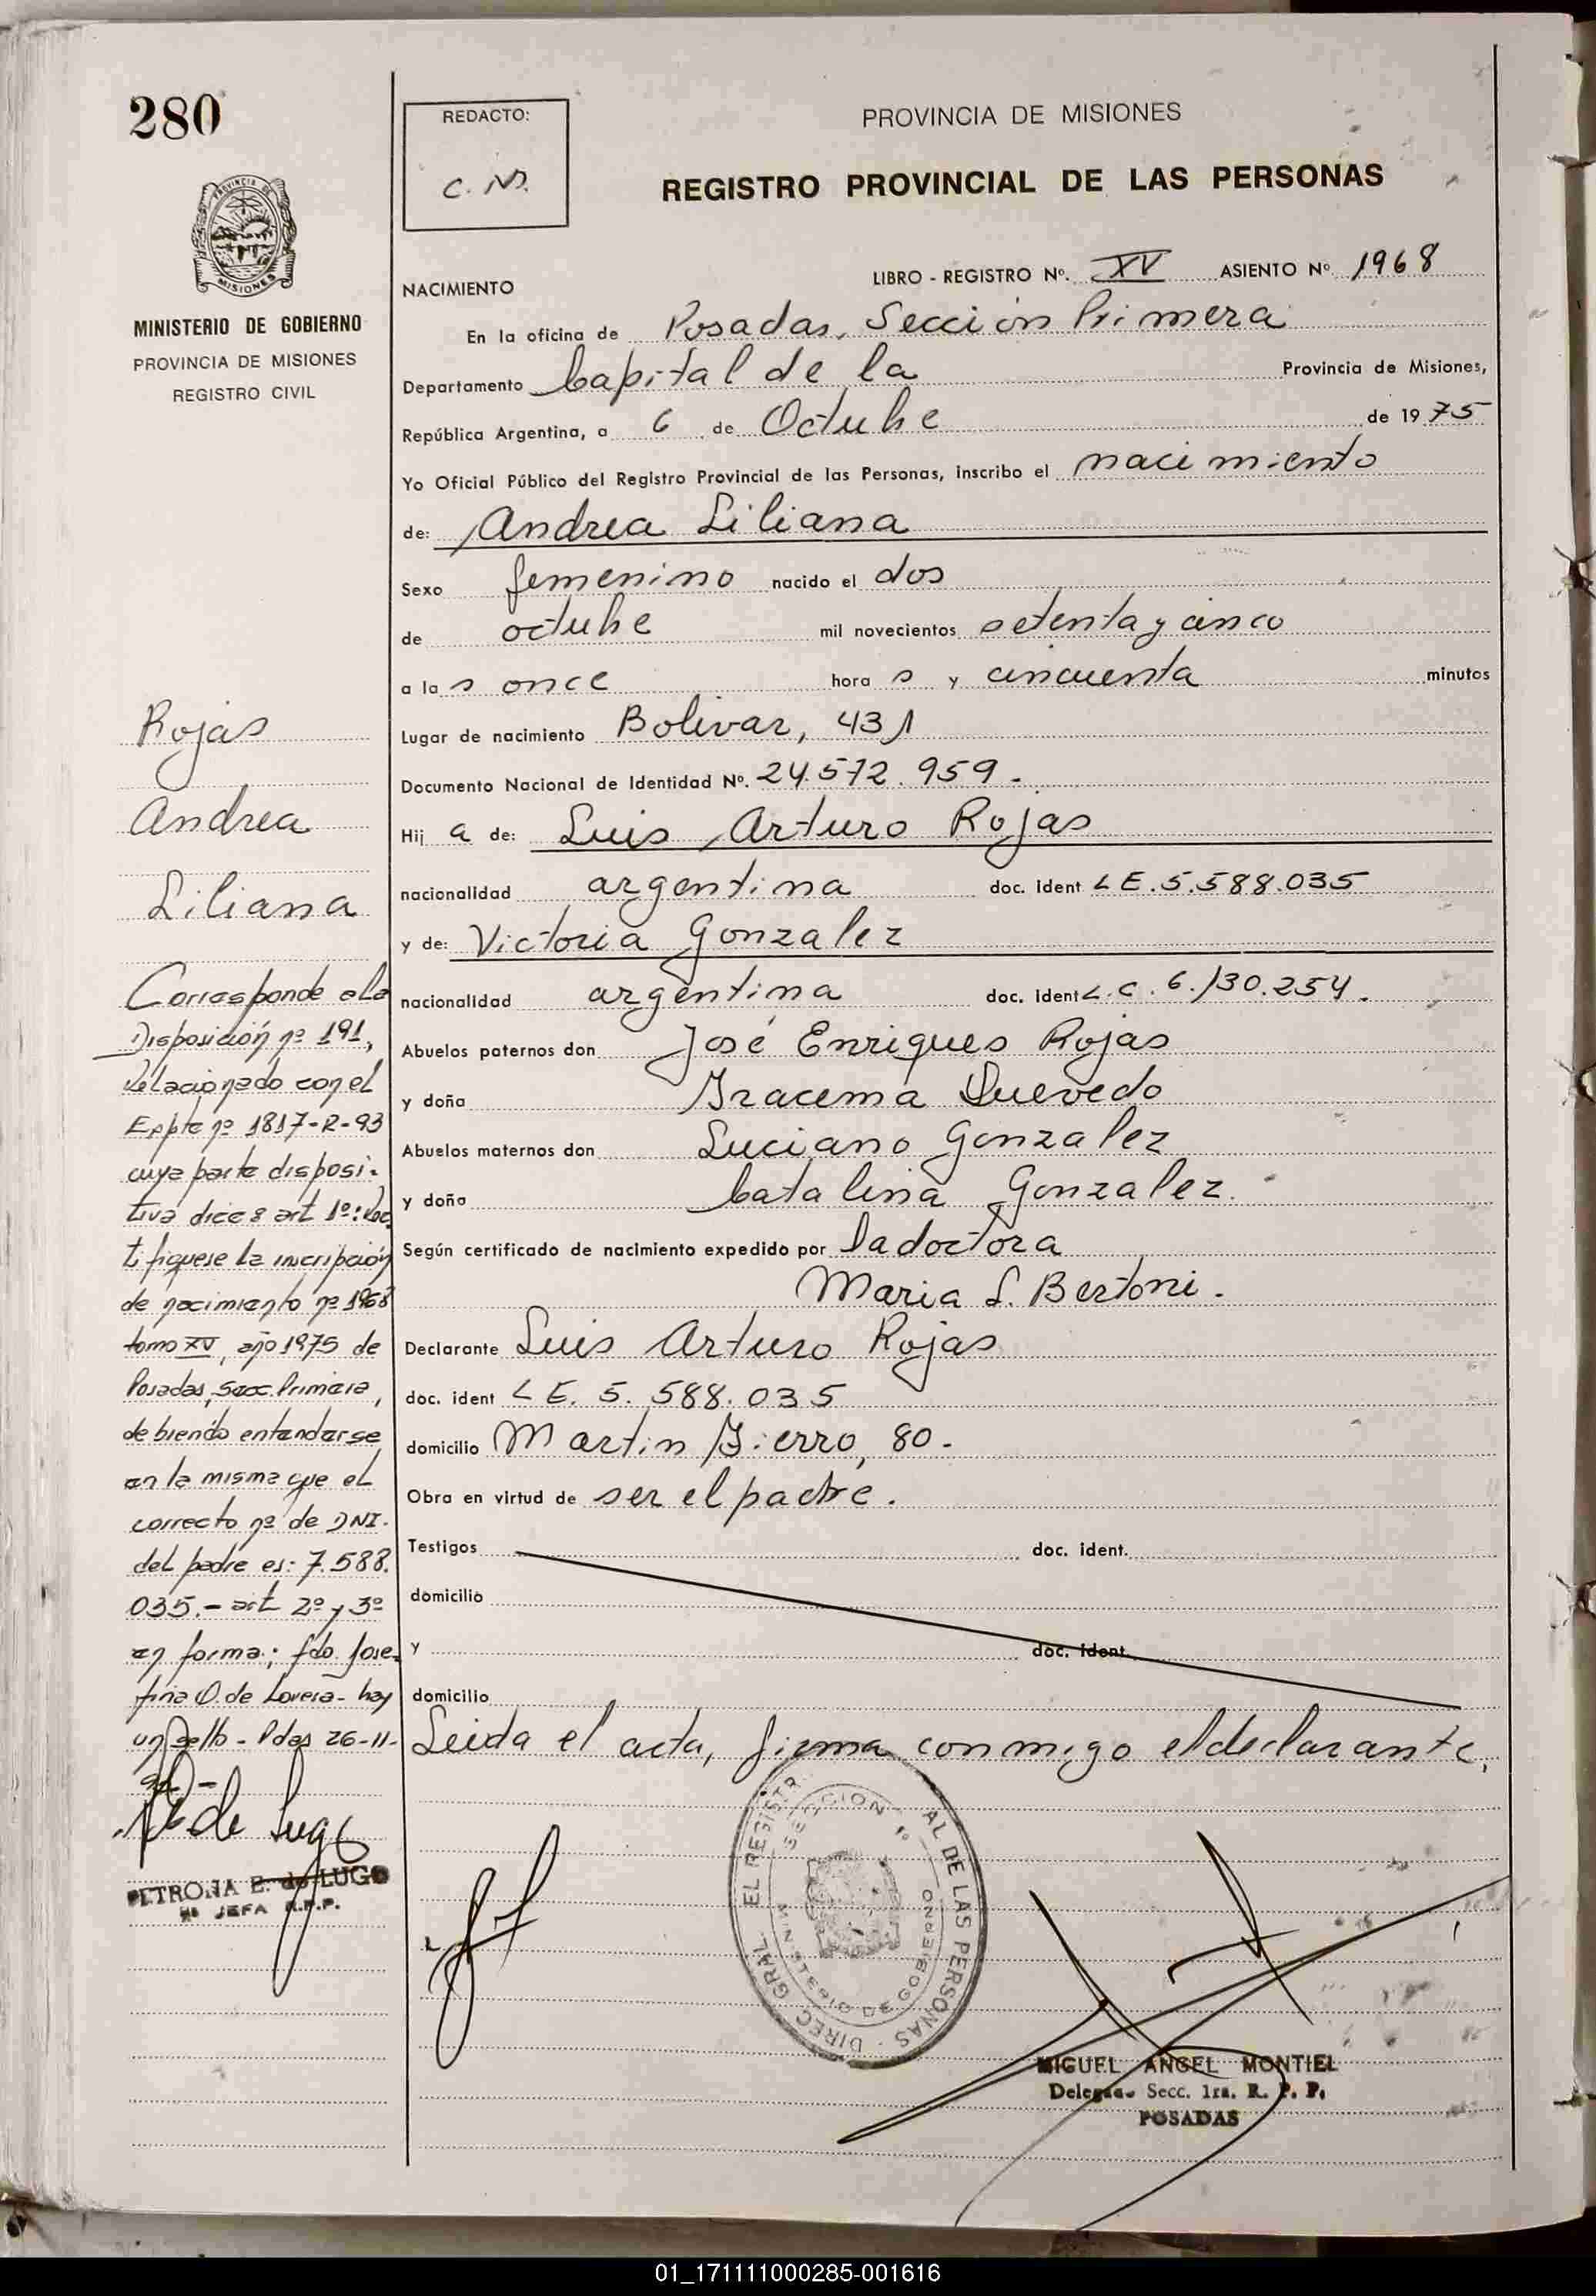 280
MINISTERIO DE GOBIERNO
PROVINCIA DE MISIONES
REGISTRO CIVIL
REDACTO:
PROVINCIA DE MISIONES
REGISTRO PROVINCIAL DE LAS PERSONAS
LIBRO - REGISTRO Nº. XV ASIENTO Nº 1968
NACIMIENTO
En la oficina de Posadas, Sección Primera
Departamento Capital de la Provincia de Misiones,
República Argentina, a 6 de Octubre de 1975
Yo Oficial Público del Registro Provincial de las Personas, inscribo el nacimiento
de: Andrea Liliana
Sexo femenino nacido el dos
de octubre mil novecientos setenta y cinco
a las once horas y cincuenta minutos
Lugar de nacimiento Bolivar, 431
Documento Nacional de Identidad Nº. 24.572.959.-
Hija de: Luis Arturo Rojas
nacionalidad argentina doc. ident L E. 5.588.035
y de: Victoria Gonzalez
nacionalidad argentina doc. ident L. C. 6.130.254.
Abuelos paternos don José Enriques Rojas
y doña Iracema Quevedo
Abuelos maternos don Luciano Gonzalez
y doña Catalina Gonzalez.
Según certificado de nacimiento expedido por la doctora
Maria L. Bertoni.
Declarante Luis Arturo Rojas
doc. ident L E. 5. 588. 035
domicilio Martin Fierro, 80.-
Obra en virtud de ser el padre.
Testigos doc. ident.
domicilio
y doc. ident.
domicilio
Leida el acta, firma conmigo el declarante,
Rojas
Andrea
Liliana
Corresponde a la
Disposición nº 191,
Relacionado con el
Expte nº 1817-R-93
cuya parte disposi-
tiva dice: art 1º: Rec
tifiquese la inscripción
de nacimiento nº 1968
tomo XV, año 1975 de
Posadas, Secc. Primera,
debiendo entenderse
en la misma que el
correcto nº de DNI.
del padre es: 7.588.
035.- art 2º y 3º
en forma; fdo. Jose-
fina O. de Lovera - hay
un sello - Pdas 26-11-
PETRONA E. de LUGO
JEFA R.P.P.
DIREC. GRAL. DEL REGISTR AL DE LAS PERSONAS
SECCION 1º
MINISTERIO DE GOBIERNO
MIGUEL ANGEL MONTIEL
Delegado Secc. 1ra. R. P. P.
POSADAS
01_171111000285-001616